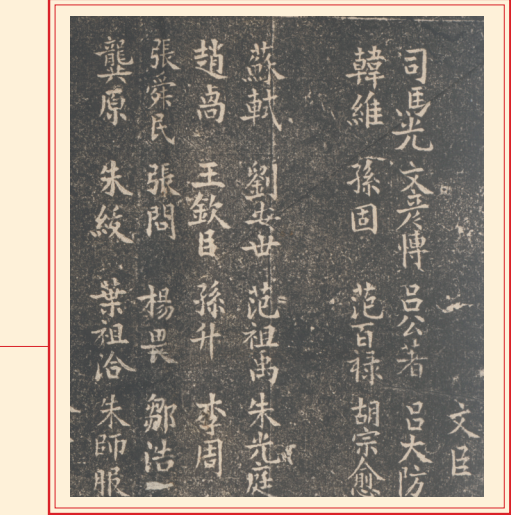 文臣
司馬光 文彦博 呂公著 呂大防
韓維 孫固 范百禄 胡宗愈
蘇軾 劉安世 范祖禹 朱光庭
趙卨 王欽臣 孫升 李周
張舜民 張問 楊畏 鄒浩
龔原 朱紱 葉祖洽 朱師服